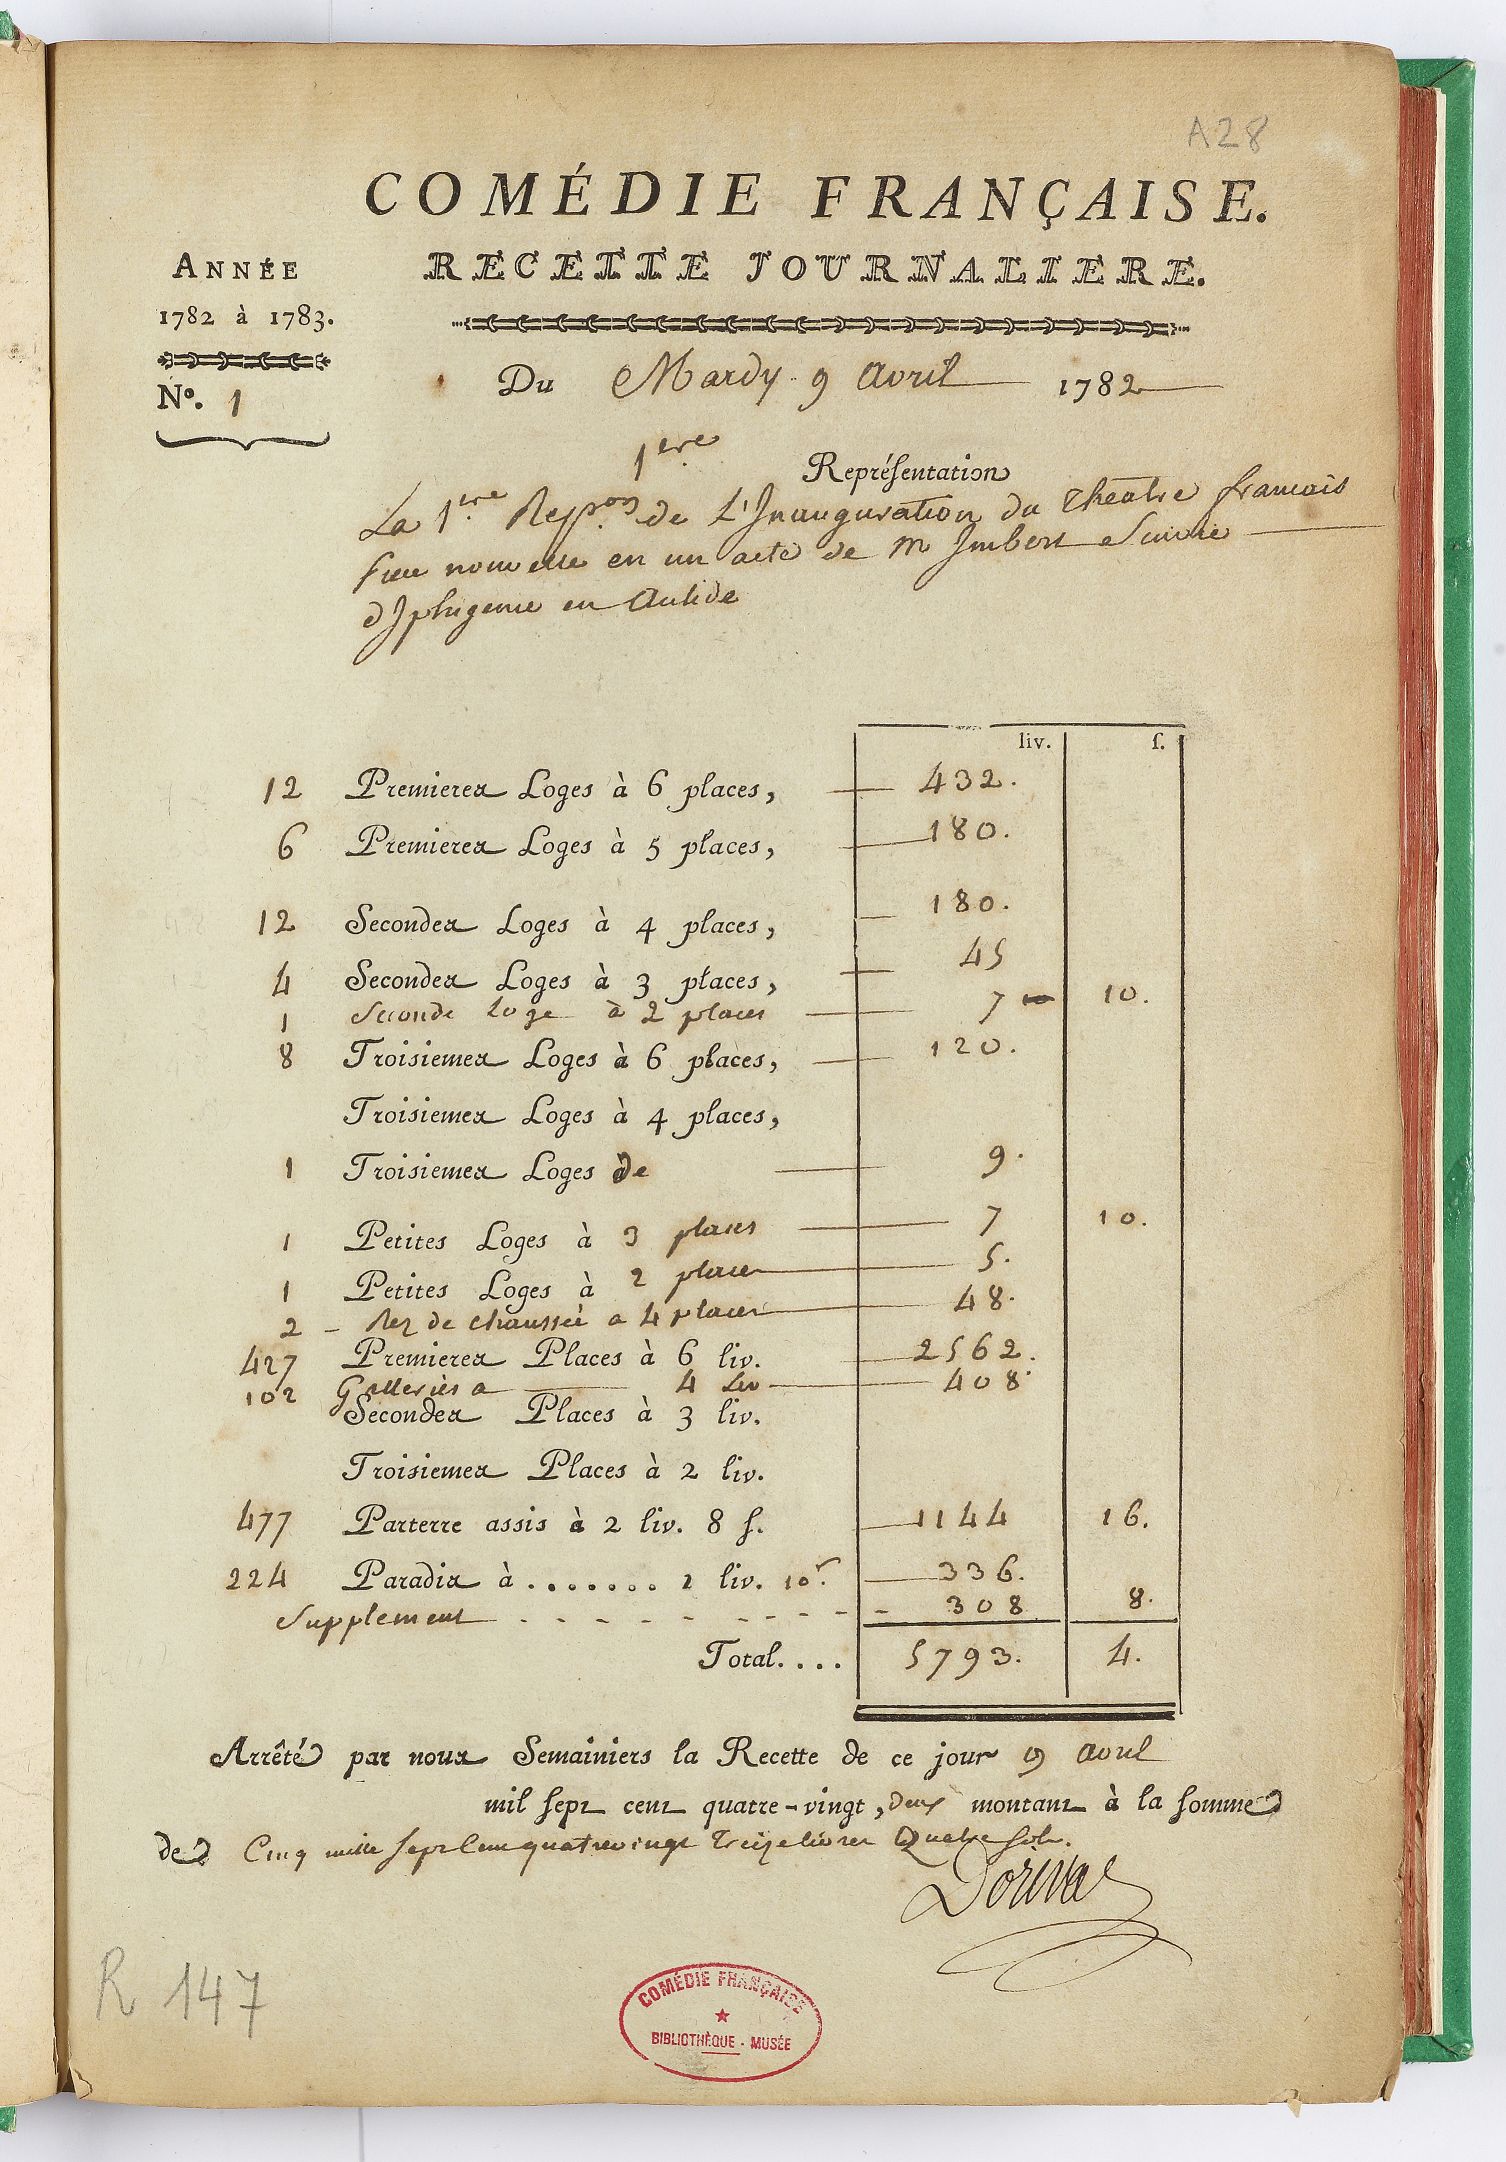 A28
COMÉDIE FRANÇAISE.
ANNÉE
RECETTE JOURNALIERE.
1782 à 1783.
Du Mardy 9 Avril 1782
No. 1
1ere Représentation
La 1ere Repon de L'Inauguration du Theatre francais
piece nouvelle en un acte de M Imbert Suivie
d'Iphigenie en Aulide
liv. ſ.
12 Premieres Loges à 6 places, 432.
6 Premieres Loges à 5 places, 180.
12 Secondes Loges à 4 places, 180.
4 Secondes Loges à 3 places, 45
1 Seconde Loge à 2 places 7 10.
8 Troisiemes Loges à 6 places, 120.
Troisiemes Loges à 4 places,
1 Troisiemes Loges de 9.
1 Petites Loges à 3 places 7 10.
1 Petites Loges à 2 places 5.
2 - Rez de chaussée a 4 places 48.
427 Premieres Places à 6 liv. 2562.
102 Galleries a 4 Liv 408.
Secondes Places à 3 liv.
Troisiemes Places à 2 liv.
477 Parterre assis à 2 liv. 8 ſ. 1144 16.
224 Paradis à ....... 1 liv. 10s. 336.
Supplement - - - - - - - - - 308 8.
Total.... 5793. 4.
Arrêté par nous Semainiers la Recette de ce jour 9 avril
mil ſept cent quatre-vingt, deux montant à la ſomme
de Cinq mille sept Cent quatrevingt Treize livres Quatre sols.
Dorival
R 147
COMÉDIE FRANÇAISE
BIBLIOTHÈQUE - MUSÉE